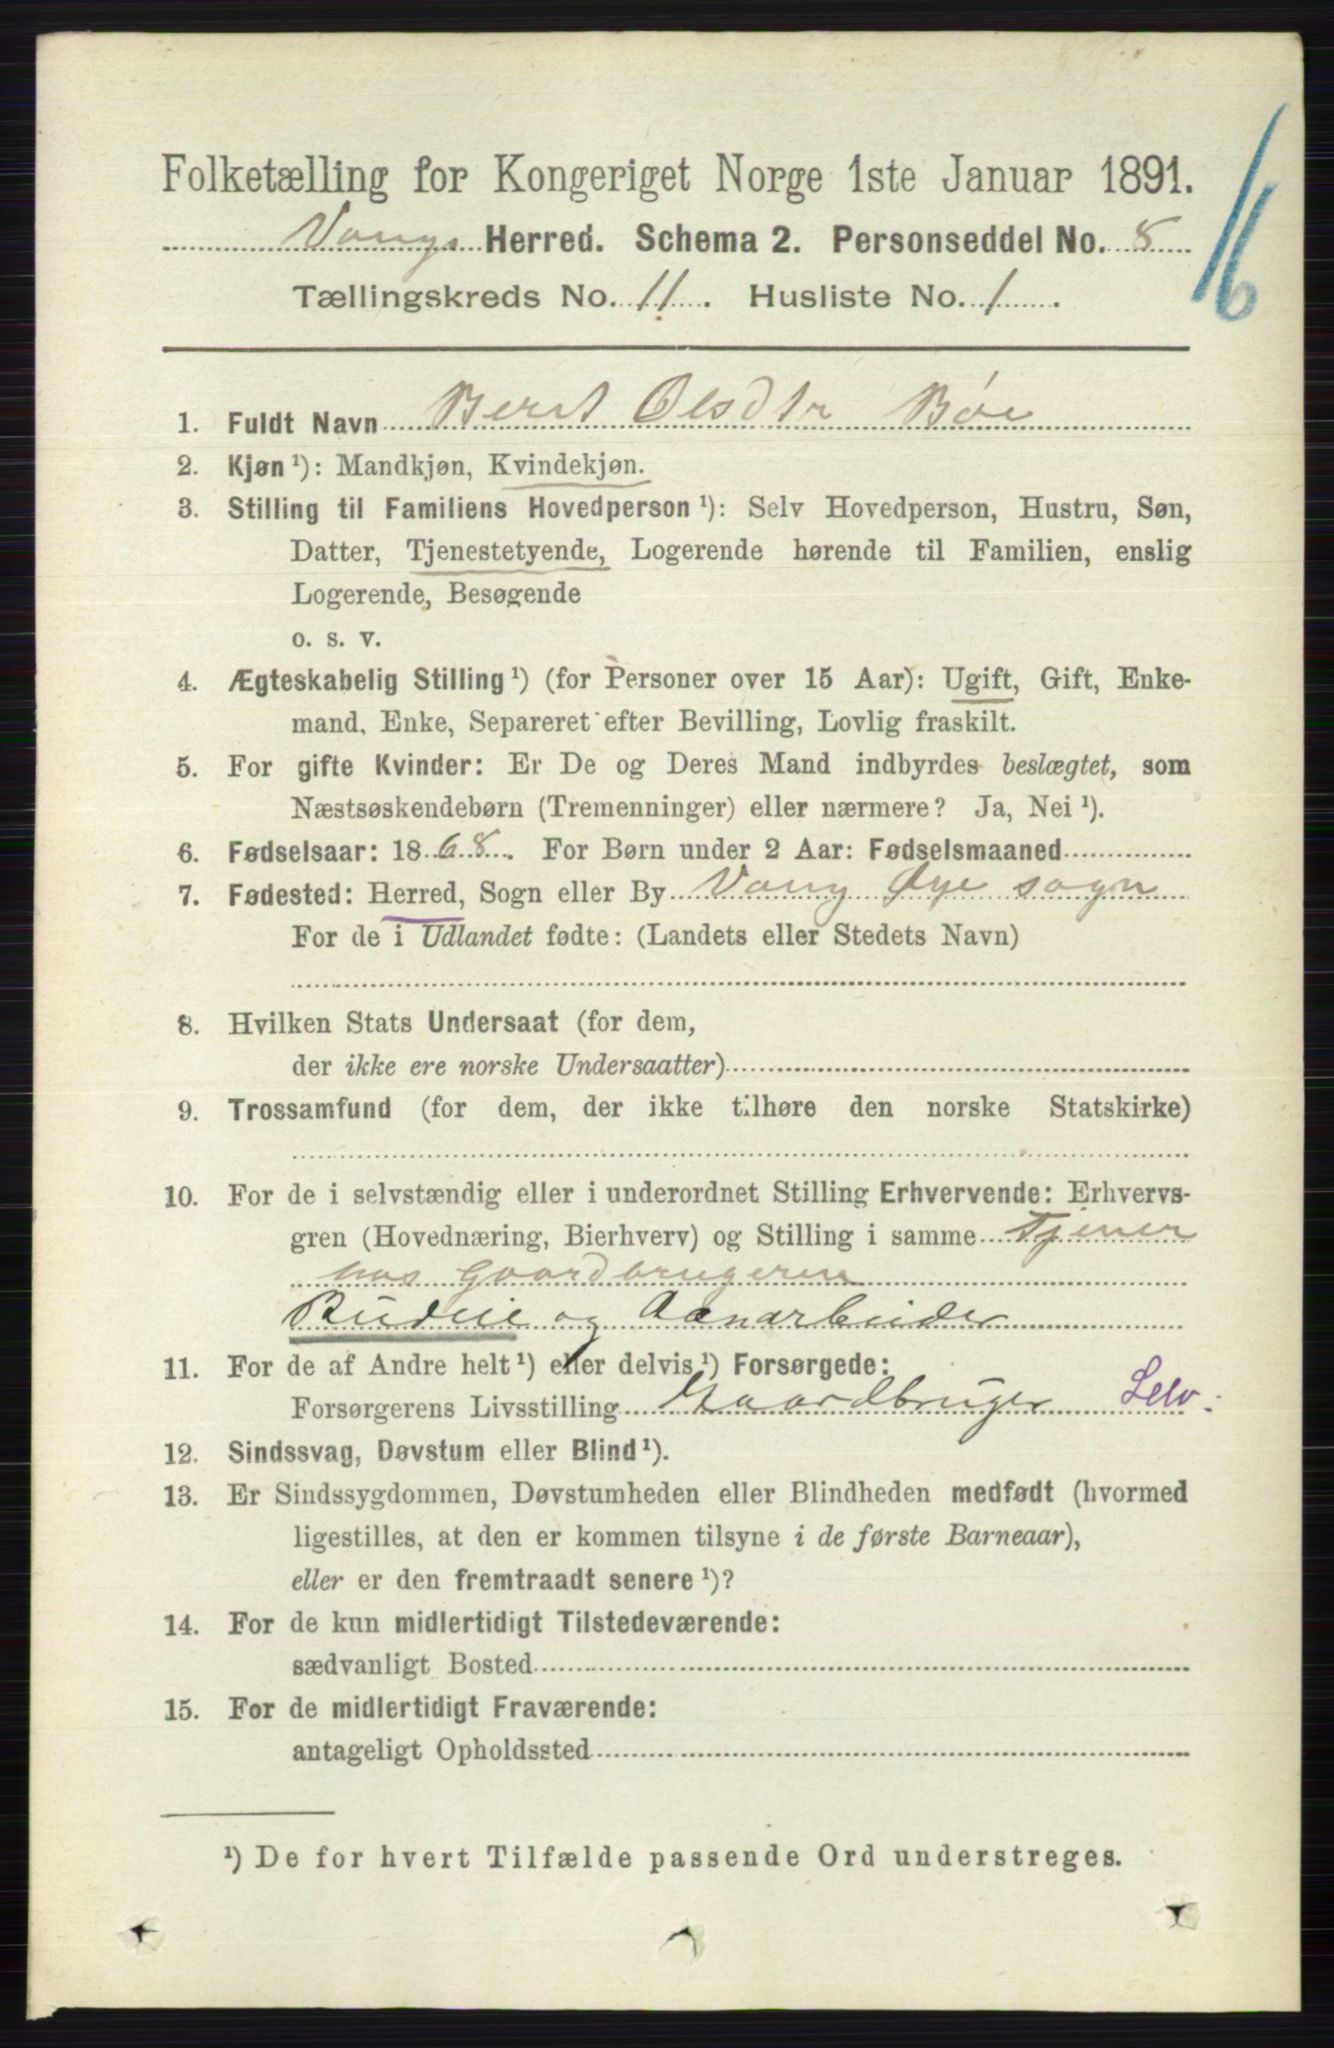 16
Folketælling for Kongeriget Norge 1ste Januar 1891.
Vangs Herred. Schema 2. Personseddel No. 8
Tællingskreds No. 11. Husliste No. 1.
1. Fuldt Navn Berit Olsdtr Bøe
2. Kjøn ¹): Mandkjøn, Kvindekjøn.
3. Stilling til Familiens Hovedperson ¹): Selv Hovedperson, Hustru, Søn,
Datter, Tjenestetyende, Logerende hørende til Familien, enslig
Logerende, Besøgende
o. s. v.
4. Ægteskabelig Stilling ¹) (for Personer over 15 Aar): Ugift, Gift, Enke-
mand, Enke, Separeret efter Bevilling, Lovlig fraskilt.
5. For gifte Kvinder: Er De og Deres Mand indbyrdes beslægtet, som
Næstsøskendebørn (Tremenninger) eller nærmere? Ja, Nei ¹).
6. Fødselsaar: 1868. For Børn under 2 Aar: Fødselsmaaned
7. Fødested: Herred, Sogn eller By Vang Øye sogn
For de i Udlandet fødte: (Landets eller Stedets Navn)
8. Hvilken Stats Undersaat (for dem,
der ikke ere norske Undersaatter)
9. Trossamfund (for dem, der ikke tilhøre den norske Statskirke)
10. For de i selvstændig eller i underordnet Stilling Erhvervende: Erhvervs-
gren (Hovednæring, Bierhverv) og Stilling i samme Tjener
hos Gaardbrugeren
Budeie og Aanarbeider
11. For de af Andre helt ¹) eller delvis ¹) Forsørgede:
Forsørgerens Livsstilling Gaardbruger Selv.
12. Sindssvag, Døvstum eller Blind ¹).
13. Er Sindssygdommen, Døvstumheden eller Blindheden medfødt (hvormed
ligestilles, at den er kommen tilsyne i de første Barneaar),
eller er den fremtraadt senere ¹)?
14. For de kun midlertidigt Tilstedeværende:
sædvanligt Bosted
15. For de midlertidigt Fraværende:
antageligt Opholdssted
¹) De for hvert Tilfælde passende Ord understreges.